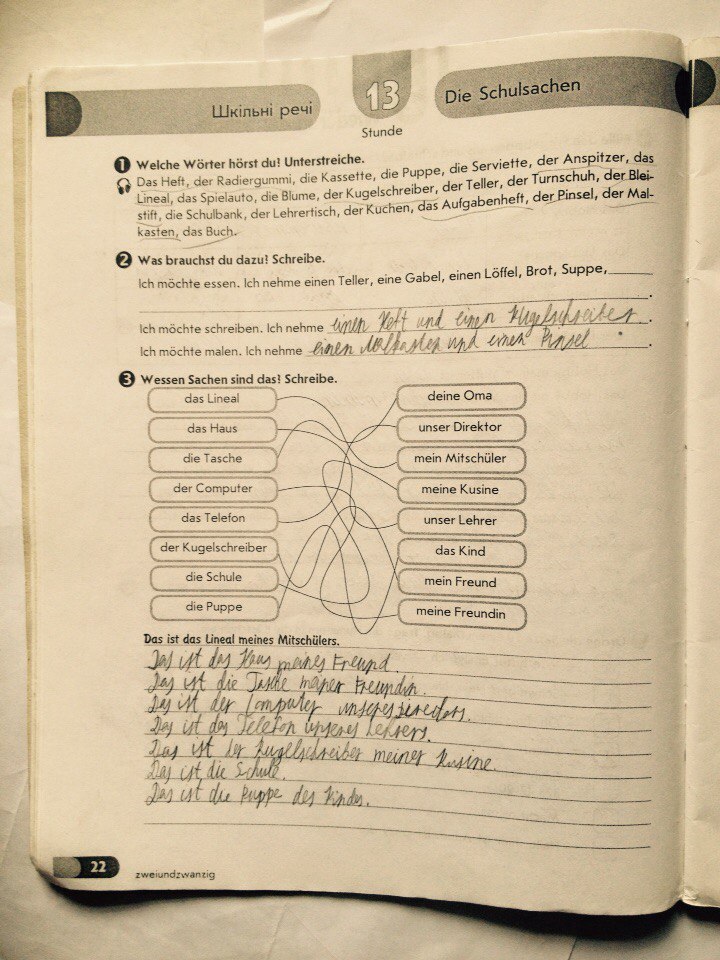 Шкільні речі
13
Stunde
Die Schulsachen
1 Welche Wörter hörst du? Unterstreiche.
Das Heft, der Radiergummi, die Kassette, die Puppe, die Serviette, der Anspitzer, das
Lineal, das Spielauto, die Blume, der Kugelschreiber, der Teller, der Turnschuh, der Blei-
stift, die Schulbank, der Lehrertisch, der Kuchen, das Aufgabenheft, der Pinsel, der Mal-
kasten, das Buch.
2 Was brauchst du dazu? Schreibe.
Ich möchte essen. Ich nehme einen Teller, eine Gabel, einen Löffel, Brot, Suppe,
Ich möchte schreiben. Ich nehme einen Heft und einen Kugelschreiber.
Ich möchte malen. Ich nehme einen Malkasten und einen Pinsel.
3 Wessen Sachen sind das? Schreibe.
das Lineal
das Haus
die Tasche
der Computer
das Telefon
der Kugelschreiber
die Schule
die Puppe
deine Oma
unser Direktor
mein Mitschüler
meine Kusine
unser Lehrer
das Kind
mein Freund
meine Freundin
Das ist das Lineal meines Mitschülers.
Das ist das Haus meines Freund.
Das ist die Tasche meiner Freundin.
Das ist der Computer unseres Direktors.
Das ist das Telefon unseres Lehrers.
Das ist der Kugelschreiber meiner Kusine.
Das ist die Schule.
Das ist die Puppe des Kindes.
22
zweiundzwanzig